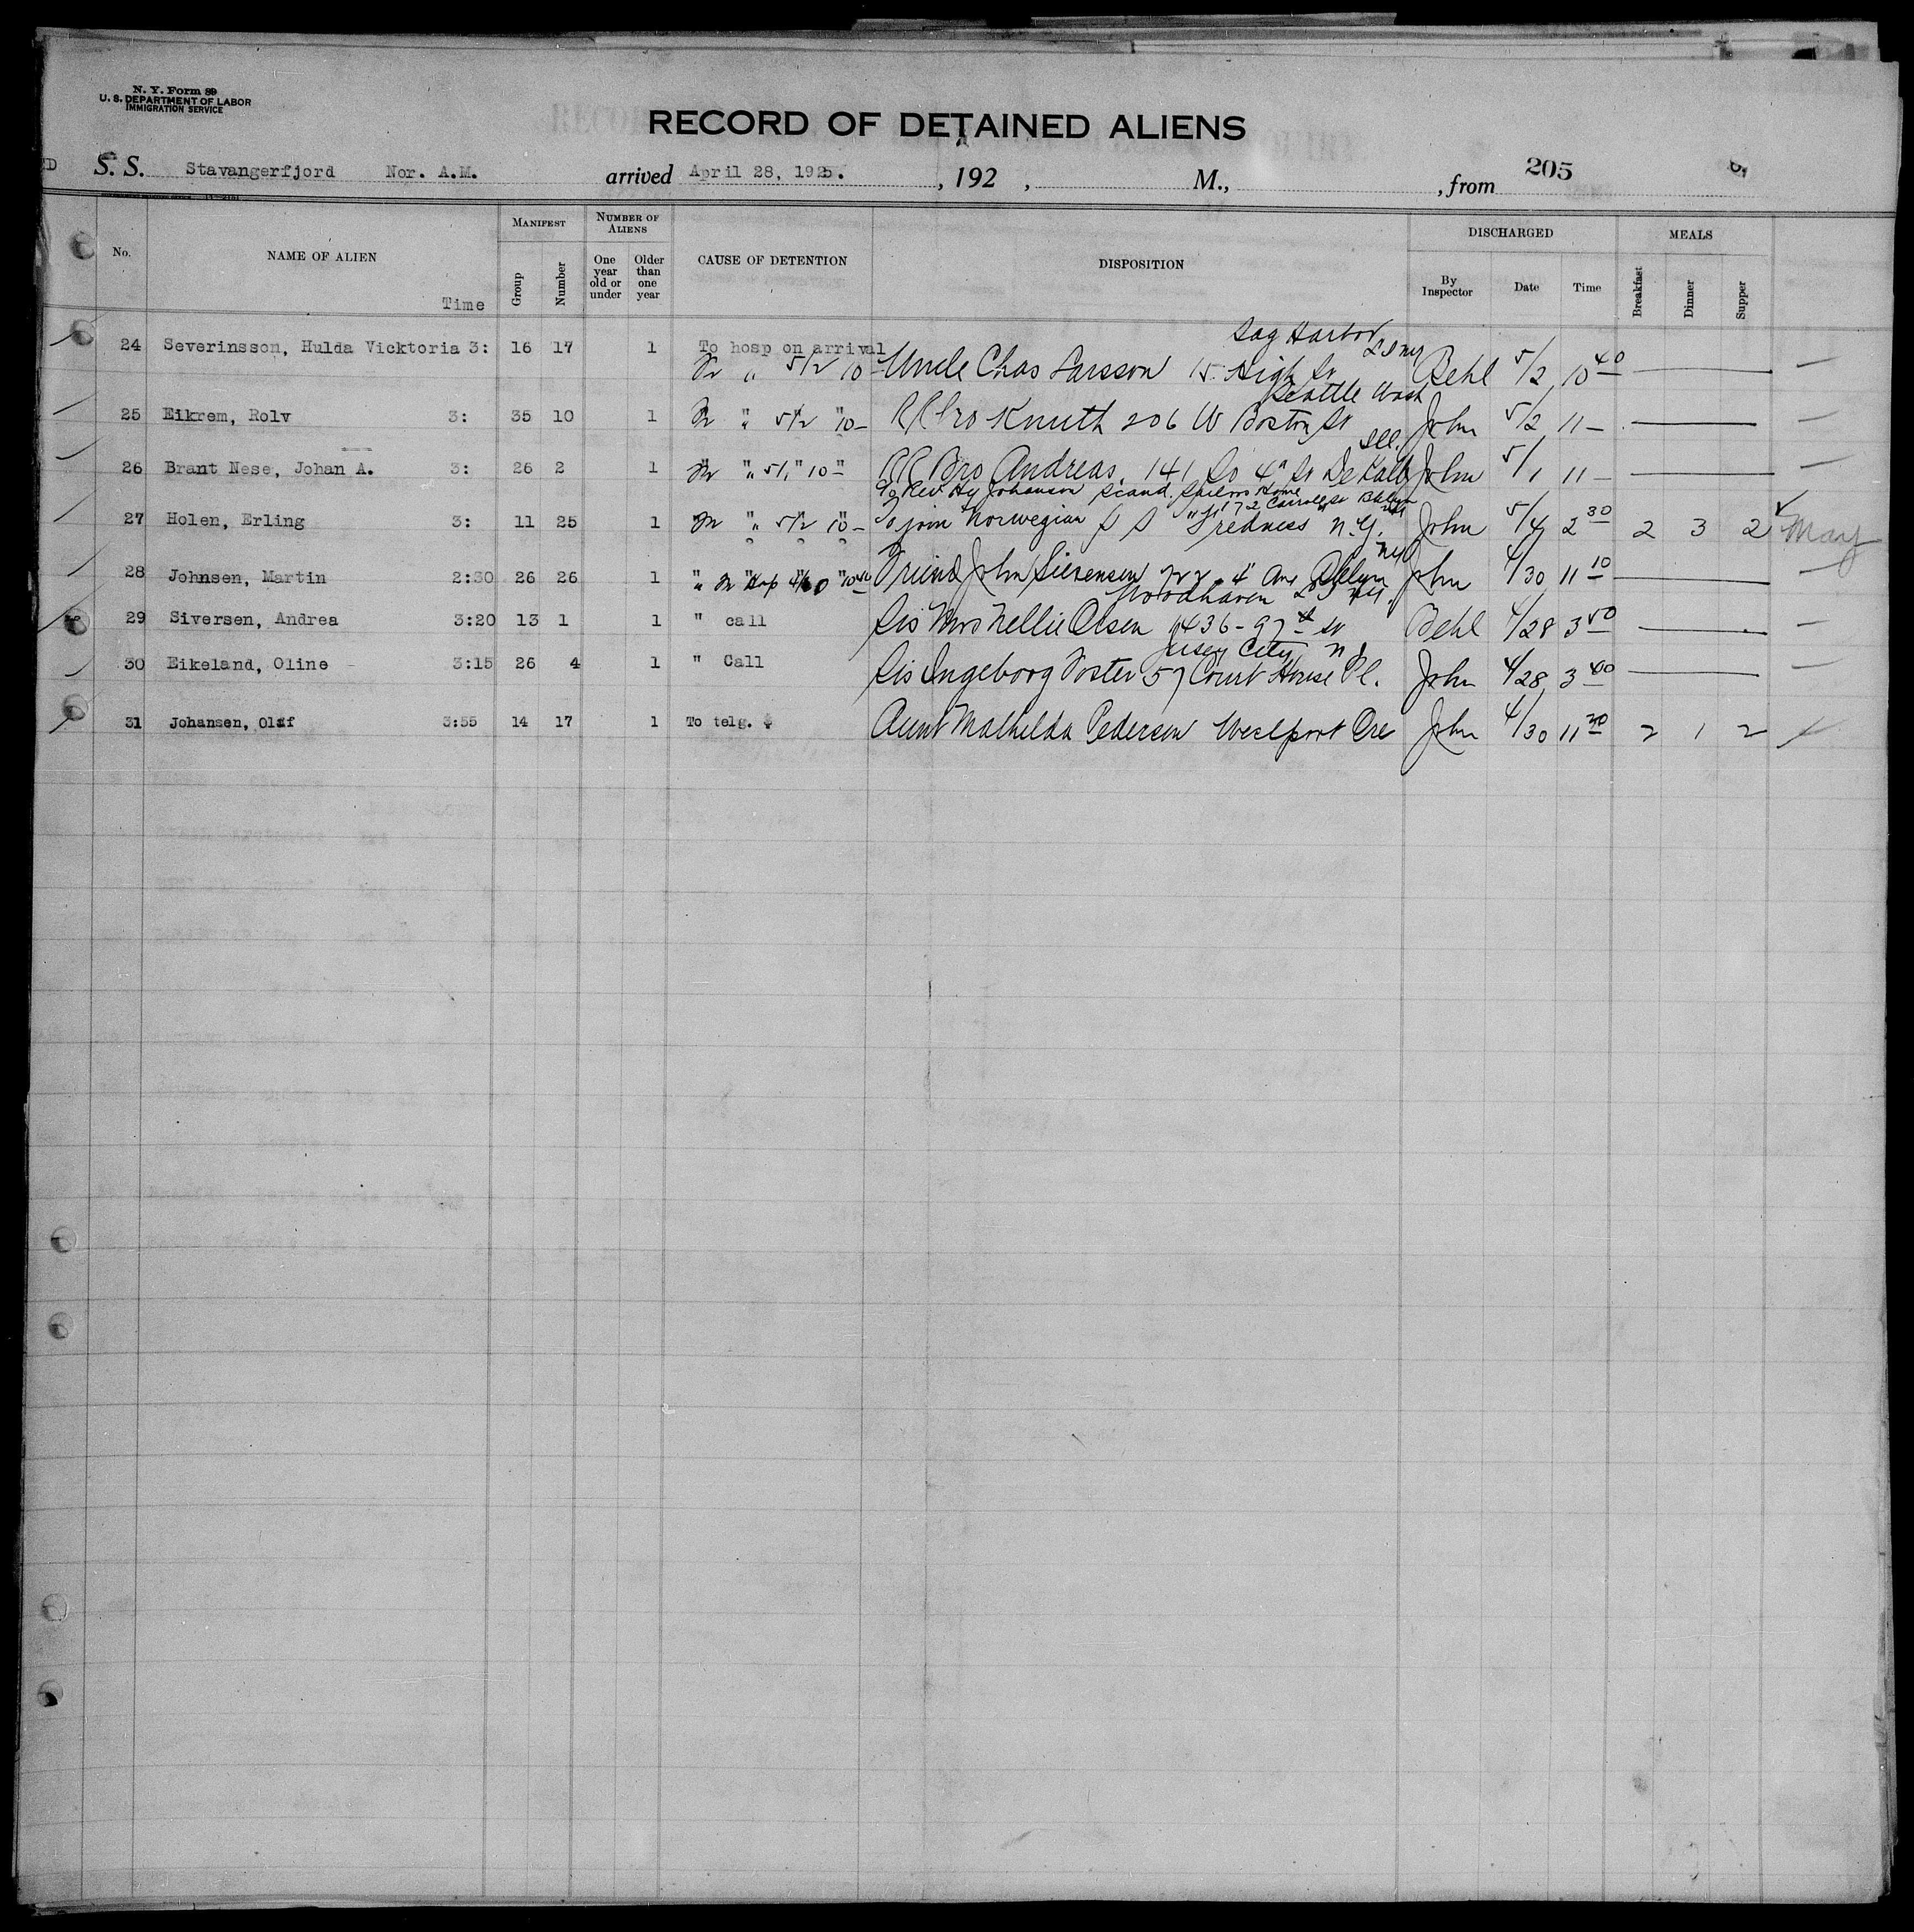 N. Y. Form 89
U. S. DEPARTMENT OF LABOR
IMMIGRATION SERVICE
RECORD OF DETAINED ALIENS
S. S. Stavangerfjord Nor. A.M. arrived April 28, 1925. , 192 , M., , from 205
No. NAME OF ALIEN Time MANIFEST Group Number NUMBER OF ALIENS One year old or under Older than one year CAUSE OF DETENTION DISPOSITION DISCHARGED By Inspector Date Time MEALS Breakfast Dinner Supper
Sag Harbor L I NY
24 Severinsson, Hulda Vicktoria 3: 16 17 1 To hosp on arrival
" 5/2 10- Uncle Chas Larsson 15 High St Behl 5/2 10 40
Seattle Wash
25 Eikrem, Rolv 3: 35 10 1 " " 5/2 " 10- RR bro Knuth 206 W Boston St John 5/2 11 -
Ill.
26 Brant Nese, Johan A. 3: 26 2 1 " " 5/1 " 10- RR Bro Andreas. 141 So 4" St De Kalb John 5/1 11 -
c/o Rev Hy Johanson Scand. Sailors Home 172 Carroll St Bklyn
27 Holen, Erling 3: 11 25 1 " " 5/2 10- To join Norwegian S S "Fredness" N.Y. John 5/4 2 30 2 3 2 May
NY
28 Johnsen, Martin 2:30 26 26 1 " Hosp 4/30 " 10 40 Friend John 4" Ave Bklyn John 4/30 11 10
Woodhaven L I NY
29 Siversen, Andrea 3:20 13 1 1 " call Sis Mrs Nellie Olsen 9436 - 97th St Behl 4/28 3 50
Jersey City N J
30 Eikeland, Oline 3:15 26 4 1 " Call Sis Ingeborg Foster 57 Court House Pl. John 4/28 3 40
31 Johansen, Olaf 3:55 14 17 1 To telg. $ Aunt Mathilda Pedersen Westport Ore John 4/30 11 20 2 1 2